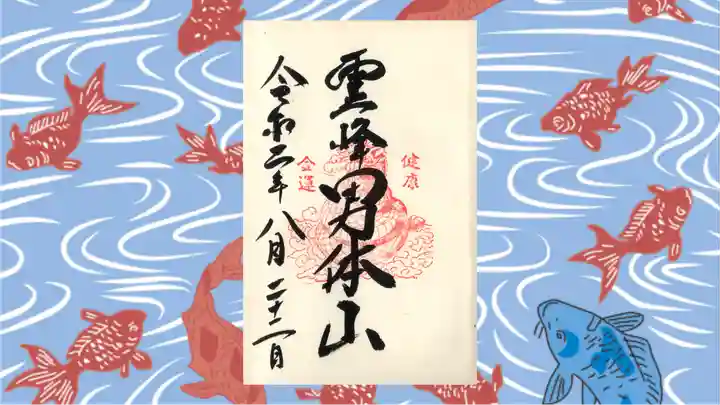 霊峰男体山
健康
金運
令和二年八月二十二日